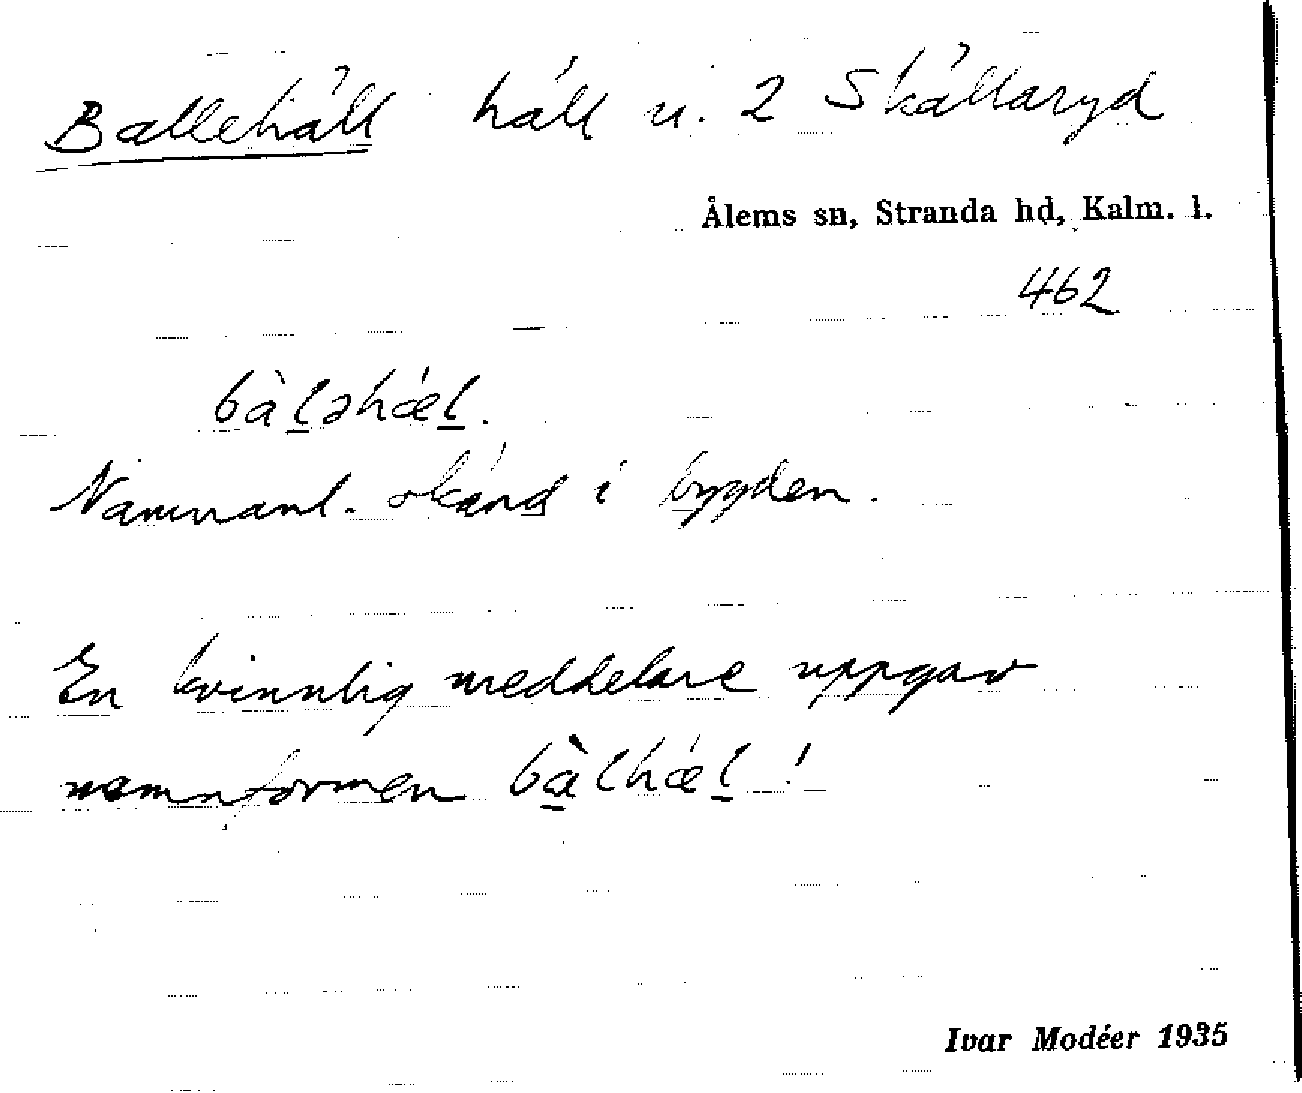 Ballehäll häll u. 2 Skällaryd
Ålems sn, Stranda hd, Kalm. l.
462
bàl̠əhǽl̠.
Namnanl. okänd i bygden.
En kvinnlig meddelare uppgav
namnformen bà̠lhǽl̠!
Ivar Modéer 1935